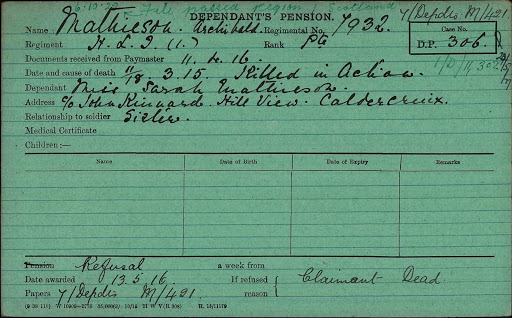 6.10.20 File passed Region 1 Scotland
DEPENDANT'S PENSION. 7/Depdts M/421
Name Mathieson. Archibald. Regimental No. 7932.
Regiment H.L.I. (1.) Rank Pte
Case No. D.P. 306.
Documents received from Paymaster 11.4.16.
Date and cause of death 11/3.15. Killed in Action.
Dependant Miss Sarah Mathieson.
Address c/o John Kinnard. Hill View. Caldercruix.
Relationship to soldier Sister.
Medical Certificate
Children:—
Name Date of Birth Date of Expiry Remarks
Pension Refusal a week from
Date awarded 13.5.16 If refused reason { Claimant Dead.
Papers 7/Depdts M/421
H. 15/11179